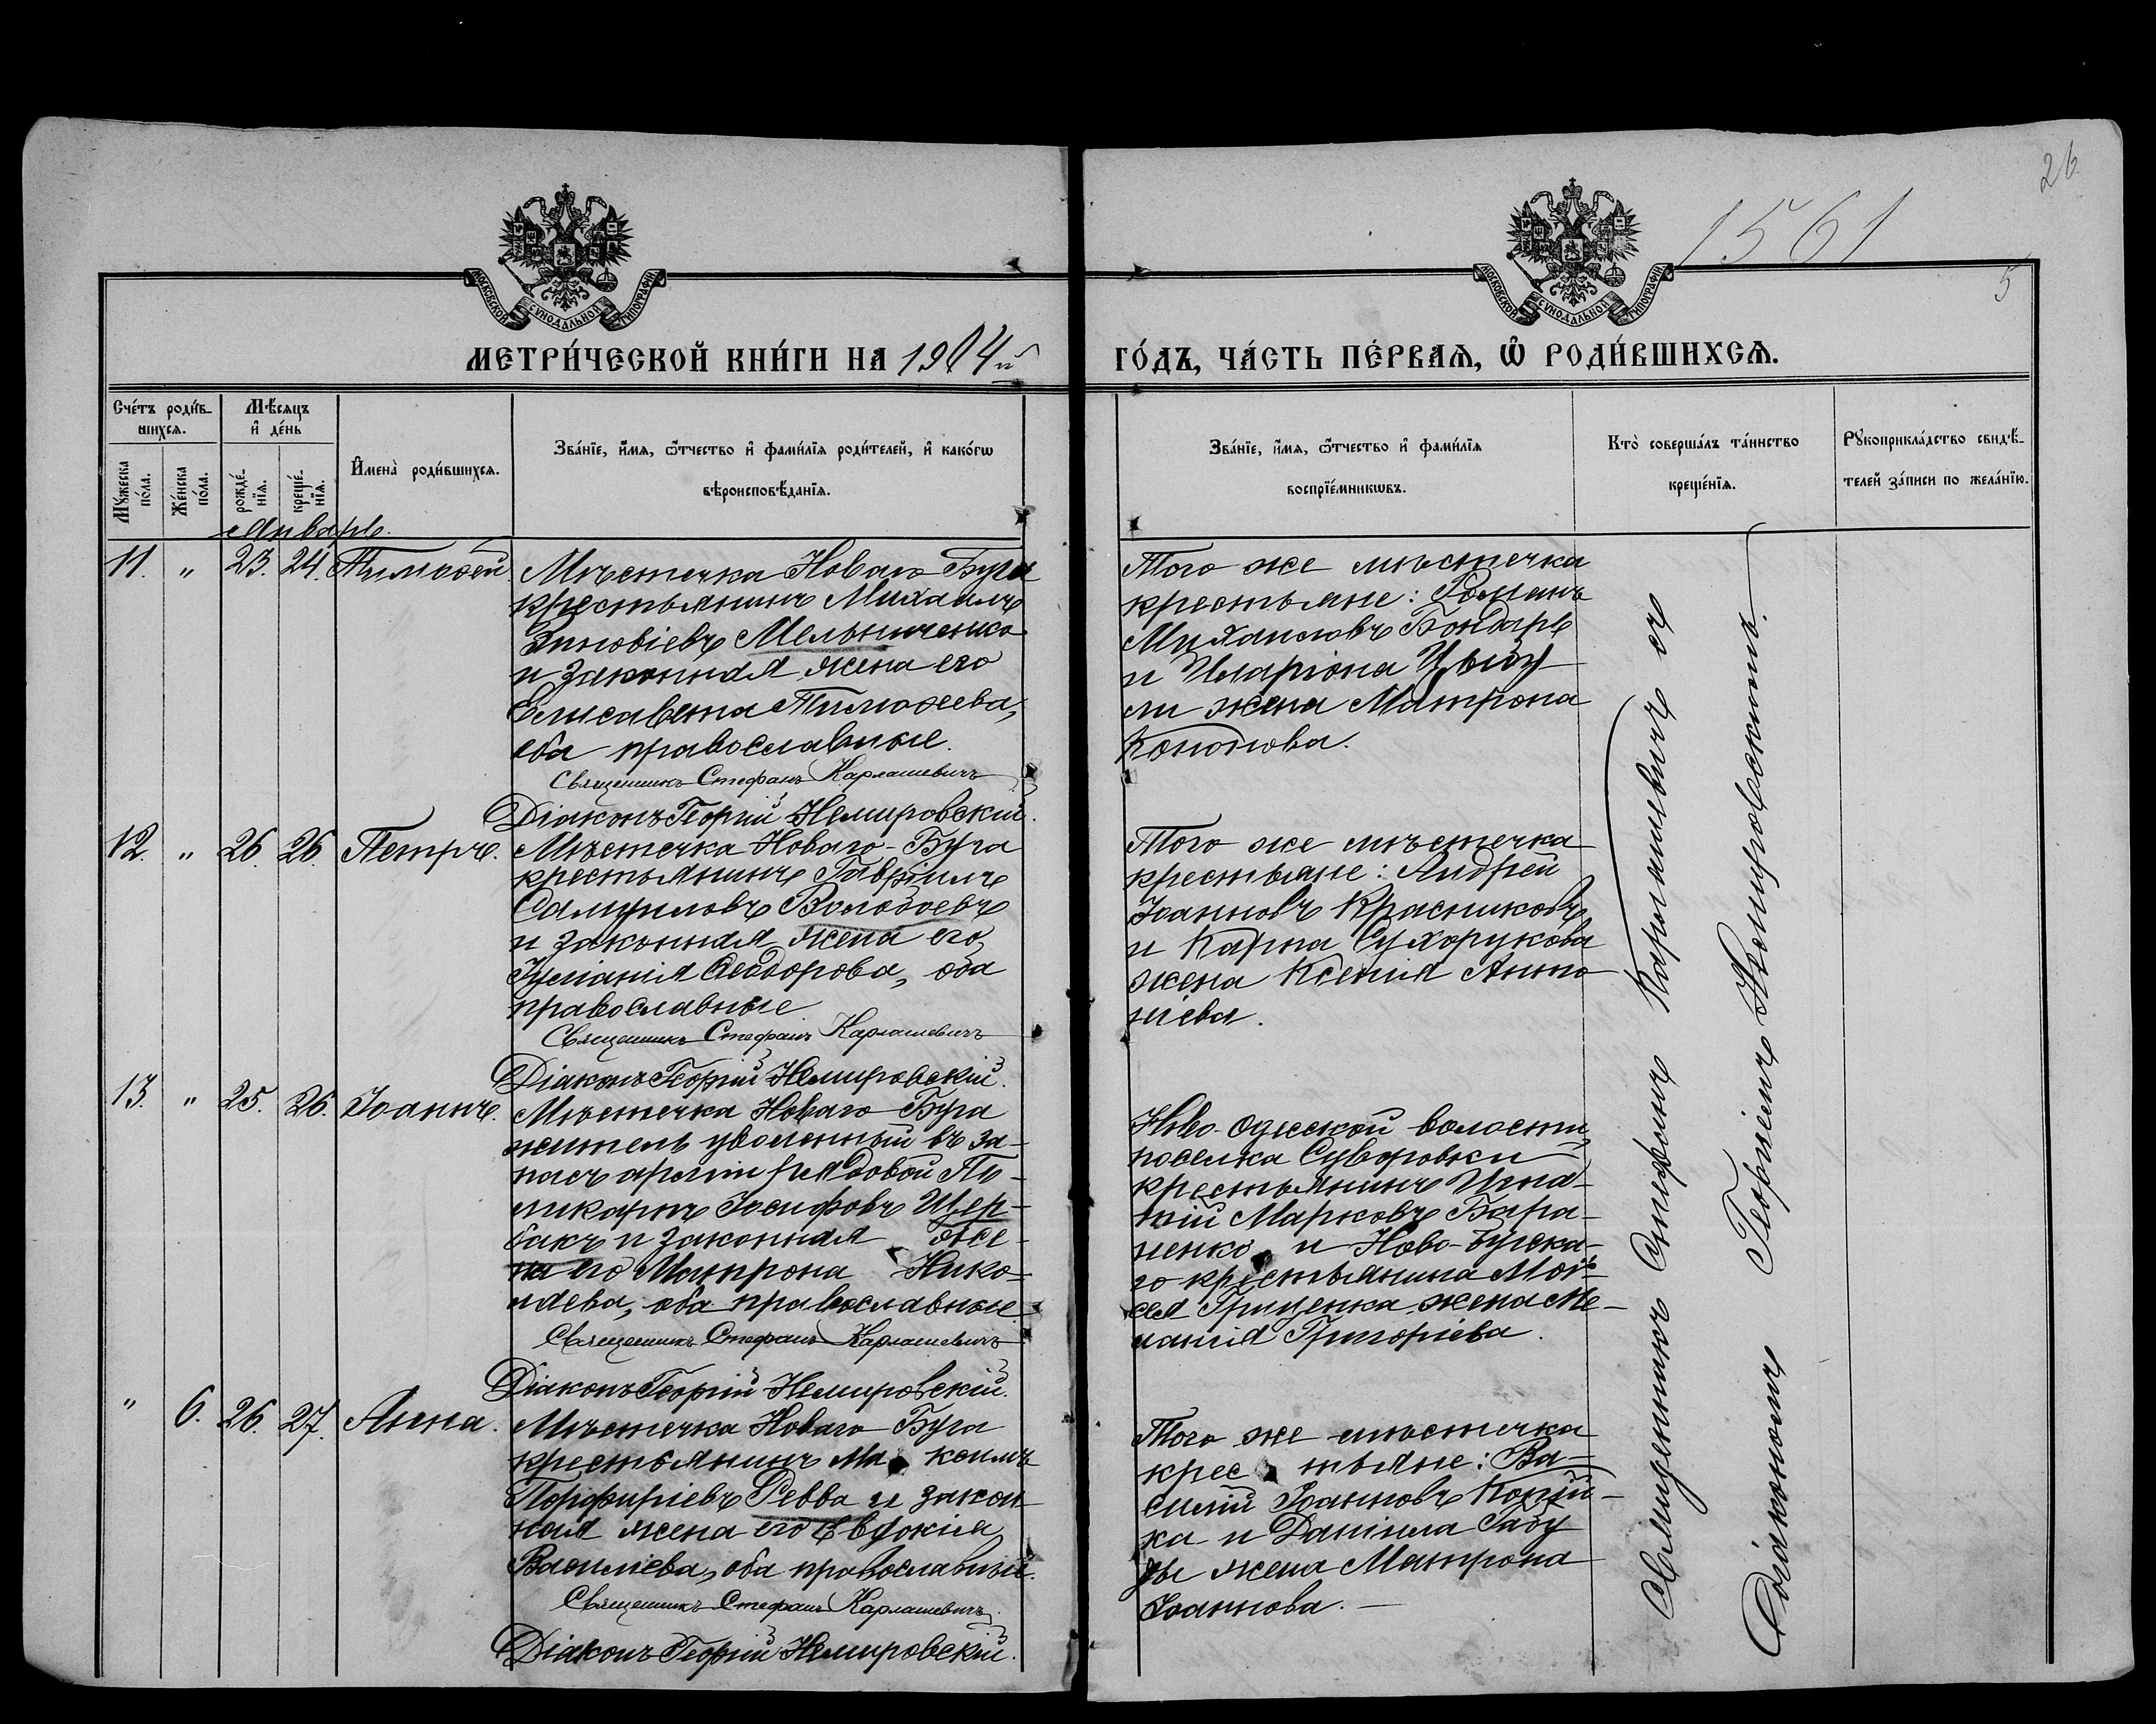 26
1561
5
МОСКОВСКОЙ СѴНОДАЛЬНОЙ ТИПОГРАФІИ
МОСКОВСКОЙ СѴНОДАЛЬНОЙ ТИПОГРАФІИ
МЕТРИ́ЧЕСКОЙ КНИ́ГИ НА 1904й ГО́ДЪ, ЧА́СТЬ ПЕ́РВАѦ, Ѽ РОДИ́ВШИХСѦ.
Сче́тъ роди́в-
шихсѧ.
Мѣ́сѧцъ
и҆ де́нь
Мꙋ́жеска
по́ла.
Же́нска
по́ла.
рожде́-
нїѧ.
креще́-
нїѧ.
И҆мена̀ роди́вшихсѧ.
Зва́нїе, и҆́мѧ, ѻ҆́тчество и҆ фами́лїѧ роди́телей, и҆ како́гѡ
вѣроисповѣ́данїѧ.
Зва́нїе, и҆́мѧ, ѻ҆́тчество и҆ фами́лїѧ
воспрїе́мникѡвъ.
Кто̀ соверша́лъ та́инство
креще́нїѧ.
Рꙋкоприкла́дство свидѣ́-
телей за́писи по жела́нїю.
Январь.
11. " 23. 24. Тимоѳей.
Мѣстечка Новаго Буга
крестьянинъ Михаилъ
Зиновіевъ Мельниченко
и законная жена его
Елисавета Тимоѳеева,
оба православные.
Священникъ Стефанъ Карлашевичъ
Діаконъ Георгій Немировскій.
Того же мѣстечка
крестьяне: Романъ
Михаиловъ Бондарь
и Иларіона
ли жена Матрона
Кононова.
12. " 26. 26. Петръ.
Мѣстечка Новаго-Буга
крестьянинъ Гавріилъ
Самуиловъ Волобоевъ
и законная жена его
Іуліанія Ѳеодорова, оба
православные
Священникъ Стефанъ Карлашевичъ
Діаконъ Георгій Немировскій.
Того же мѣстечка
крестьяне: Андрей
Іоанновъ Красниковъ
и Карпа Сухорукова
жена Ксенія Анто-
ніева.
13. " 25. 26. Іоаннъ.
Мѣстечка Новаго Буга
житель уволенный въ за-
пасъ арміи рядовой По-
ликарпъ Іосифовъ Щер-
бакъ и законная же-
на его Матрона Нико-
лаева, оба православные
Священникъ Стефанъ Карлашевичъ
Діаконъ Георгій Немировскій.
Ново-Одесской волости
поселка Суворовки
крестьянинъ Игна-
тій Марковъ Бара-
ненко и Ново-Бугска-
го крестьянина Мои-
сея Гриценка жена Ме-
ланія Григоріева.
" 6. 26. 27. Анна.
Мѣстечка Новаго Буга
крестьянинъ Ма коимъ
Порфиріевъ Ревва и закон-
ная жена его Евдокія
Василіева, оба православные.
Священникъ Стефанъ Карлашевичъ
Діаконъ Георгій Немировскій.
Того же мѣстечка
крес тьяне: Ва-
силій Іоанновъ Копій-
ка и Даніила Габу
зы жена Матрона
Іоаннова.
Священникъ Стефанъ Карлашевичъ съ
Діакономъ Георгіемъ Немировскимъ.